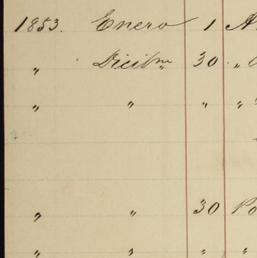 1853. Enero 1 A
„ Dicibre 30 „
„ „ „ „
„ „ 30 Po
„ „ „ „